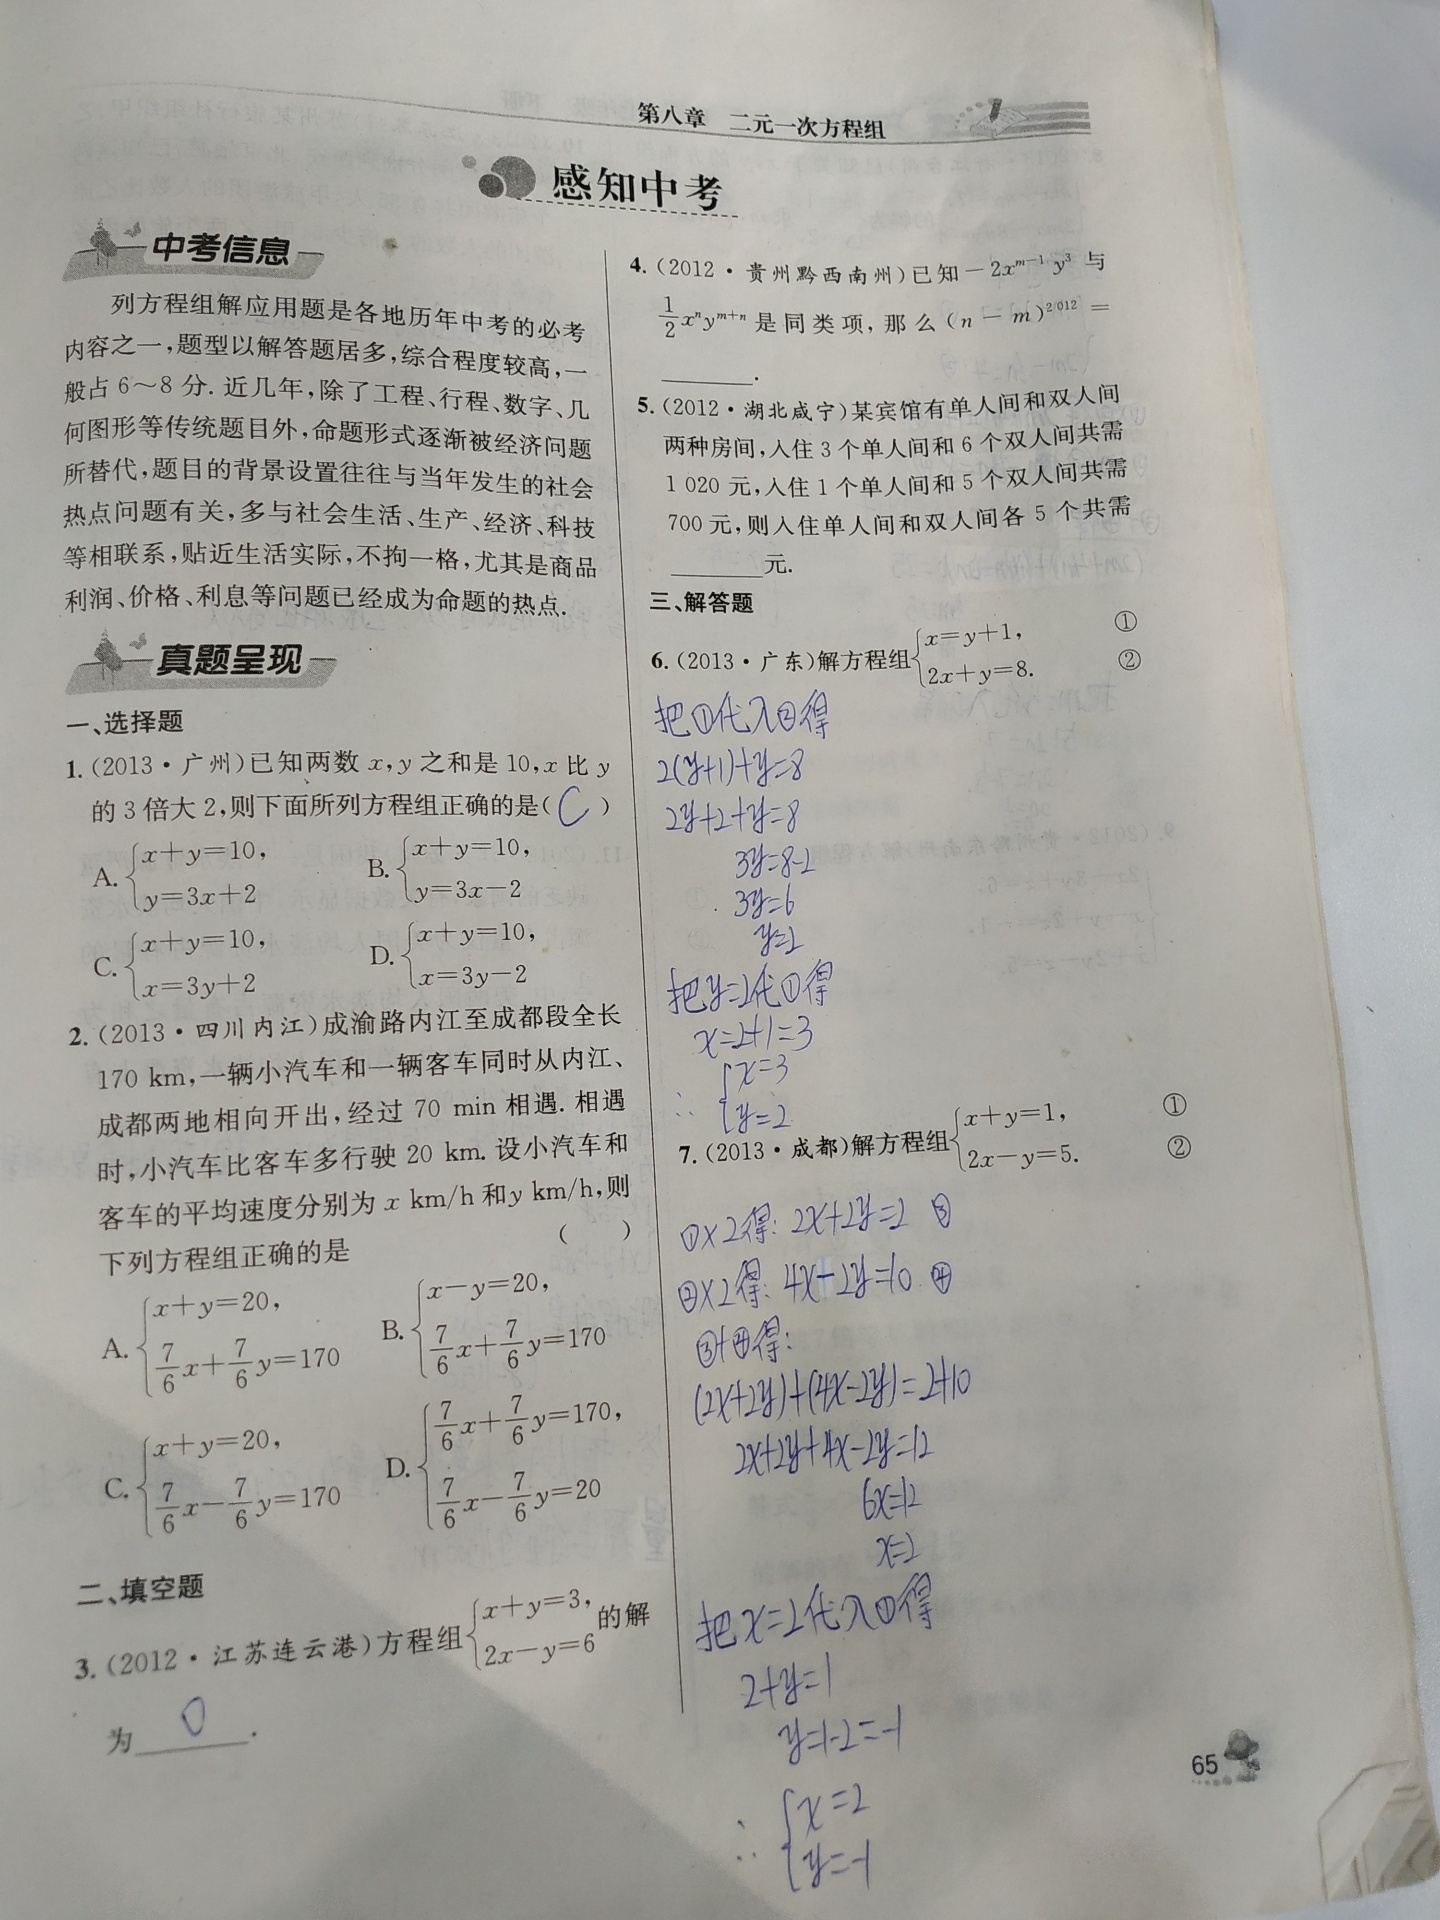 第八章 二元一次方程组
感知中考
中考信息
列方程组解应用题是各地历年中考的必考
内容之一,题型以解答题居多,综合程度较高,一
般占6~8分.近几年,除了工程、行程、数字、几
何图形等传统题目外,命题形式逐渐被经济问题
所替代,题目的背景设置往往与当年发生的社会
热点问题有关,多与社会生活、生产、经济、科技
等相联系,贴近生活实际,不拘一格,尤其是商品
利润、价格、利息等问题已经成为命题的热点.
真题呈现
一、选择题
1.(2013·广州)已知两数x,y之和是10,x比y
的3倍大2,则下面所列方程组正确的是( C )
A.{x+y=10,
y=3x+2
B.{x+y=10,
y=3x-2
C.{x+y=10,
x=3y+2
D.{x+y=10,
x=3y-2
2.(2013·四川内江)成渝路内江至成都段全长
170 km,一辆小汽车和一辆客车同时从内江、
成都两地相向开出,经过70 min相遇.相遇
时,小汽车比客车多行驶20 km.设小汽车和
客车的平均速度分别为x km/h和y km/h,则
下列方程组正确的是 ( )
A.{x+y=20,
7/6x+7/6y=170
B.{x-y=20,
7/6x+7/6y=170
C.{x+y=20,
7/6x-7/6y=170
D.{7/6x+7/6y=170,
7/6x-7/6y=20
二、填空题
3.(2012·江苏连云港)方程组{x+y=3,
2x-y=6 的解
为 0 .
4.(2012·贵州黔西南州)已知-2x^{m-1}y^3与
1/2x^n y^{m+n}是同类项,那么(n-m)^{2012}=
______.
5.(2012·湖北咸宁)某宾馆有单人间和双人间
两种房间,入住3个单人间和6个双人间共需
1 020元,入住1个单人间和5个双人间共需
700元,则入住单人间和双人间各5个共需
______元.
三、解答题
6.(2013·广东)解方程组{x=y+1, ①
2x+y=8. ②
把①代入②得
2(y+1)+y=8
2y+2+y=8
3y=8-2
3y=6
y=2
把y=2代①得
x=2+1=3
∴{x=3
y=2
7.(2013·成都)解方程组{x+y=1, ①
2x-y=5. ②
①×2得: 2x+2y=2 ③
②×2得: 4x-2y=10 ④
③+④得:
(2x+2y)+(4x-2y)=2+10
2x+2y+4x-2y=12
6x=12
x=2
把x=2代入①得
2+y=1
y=1-2=-1
∴{x=2
y=-1
65